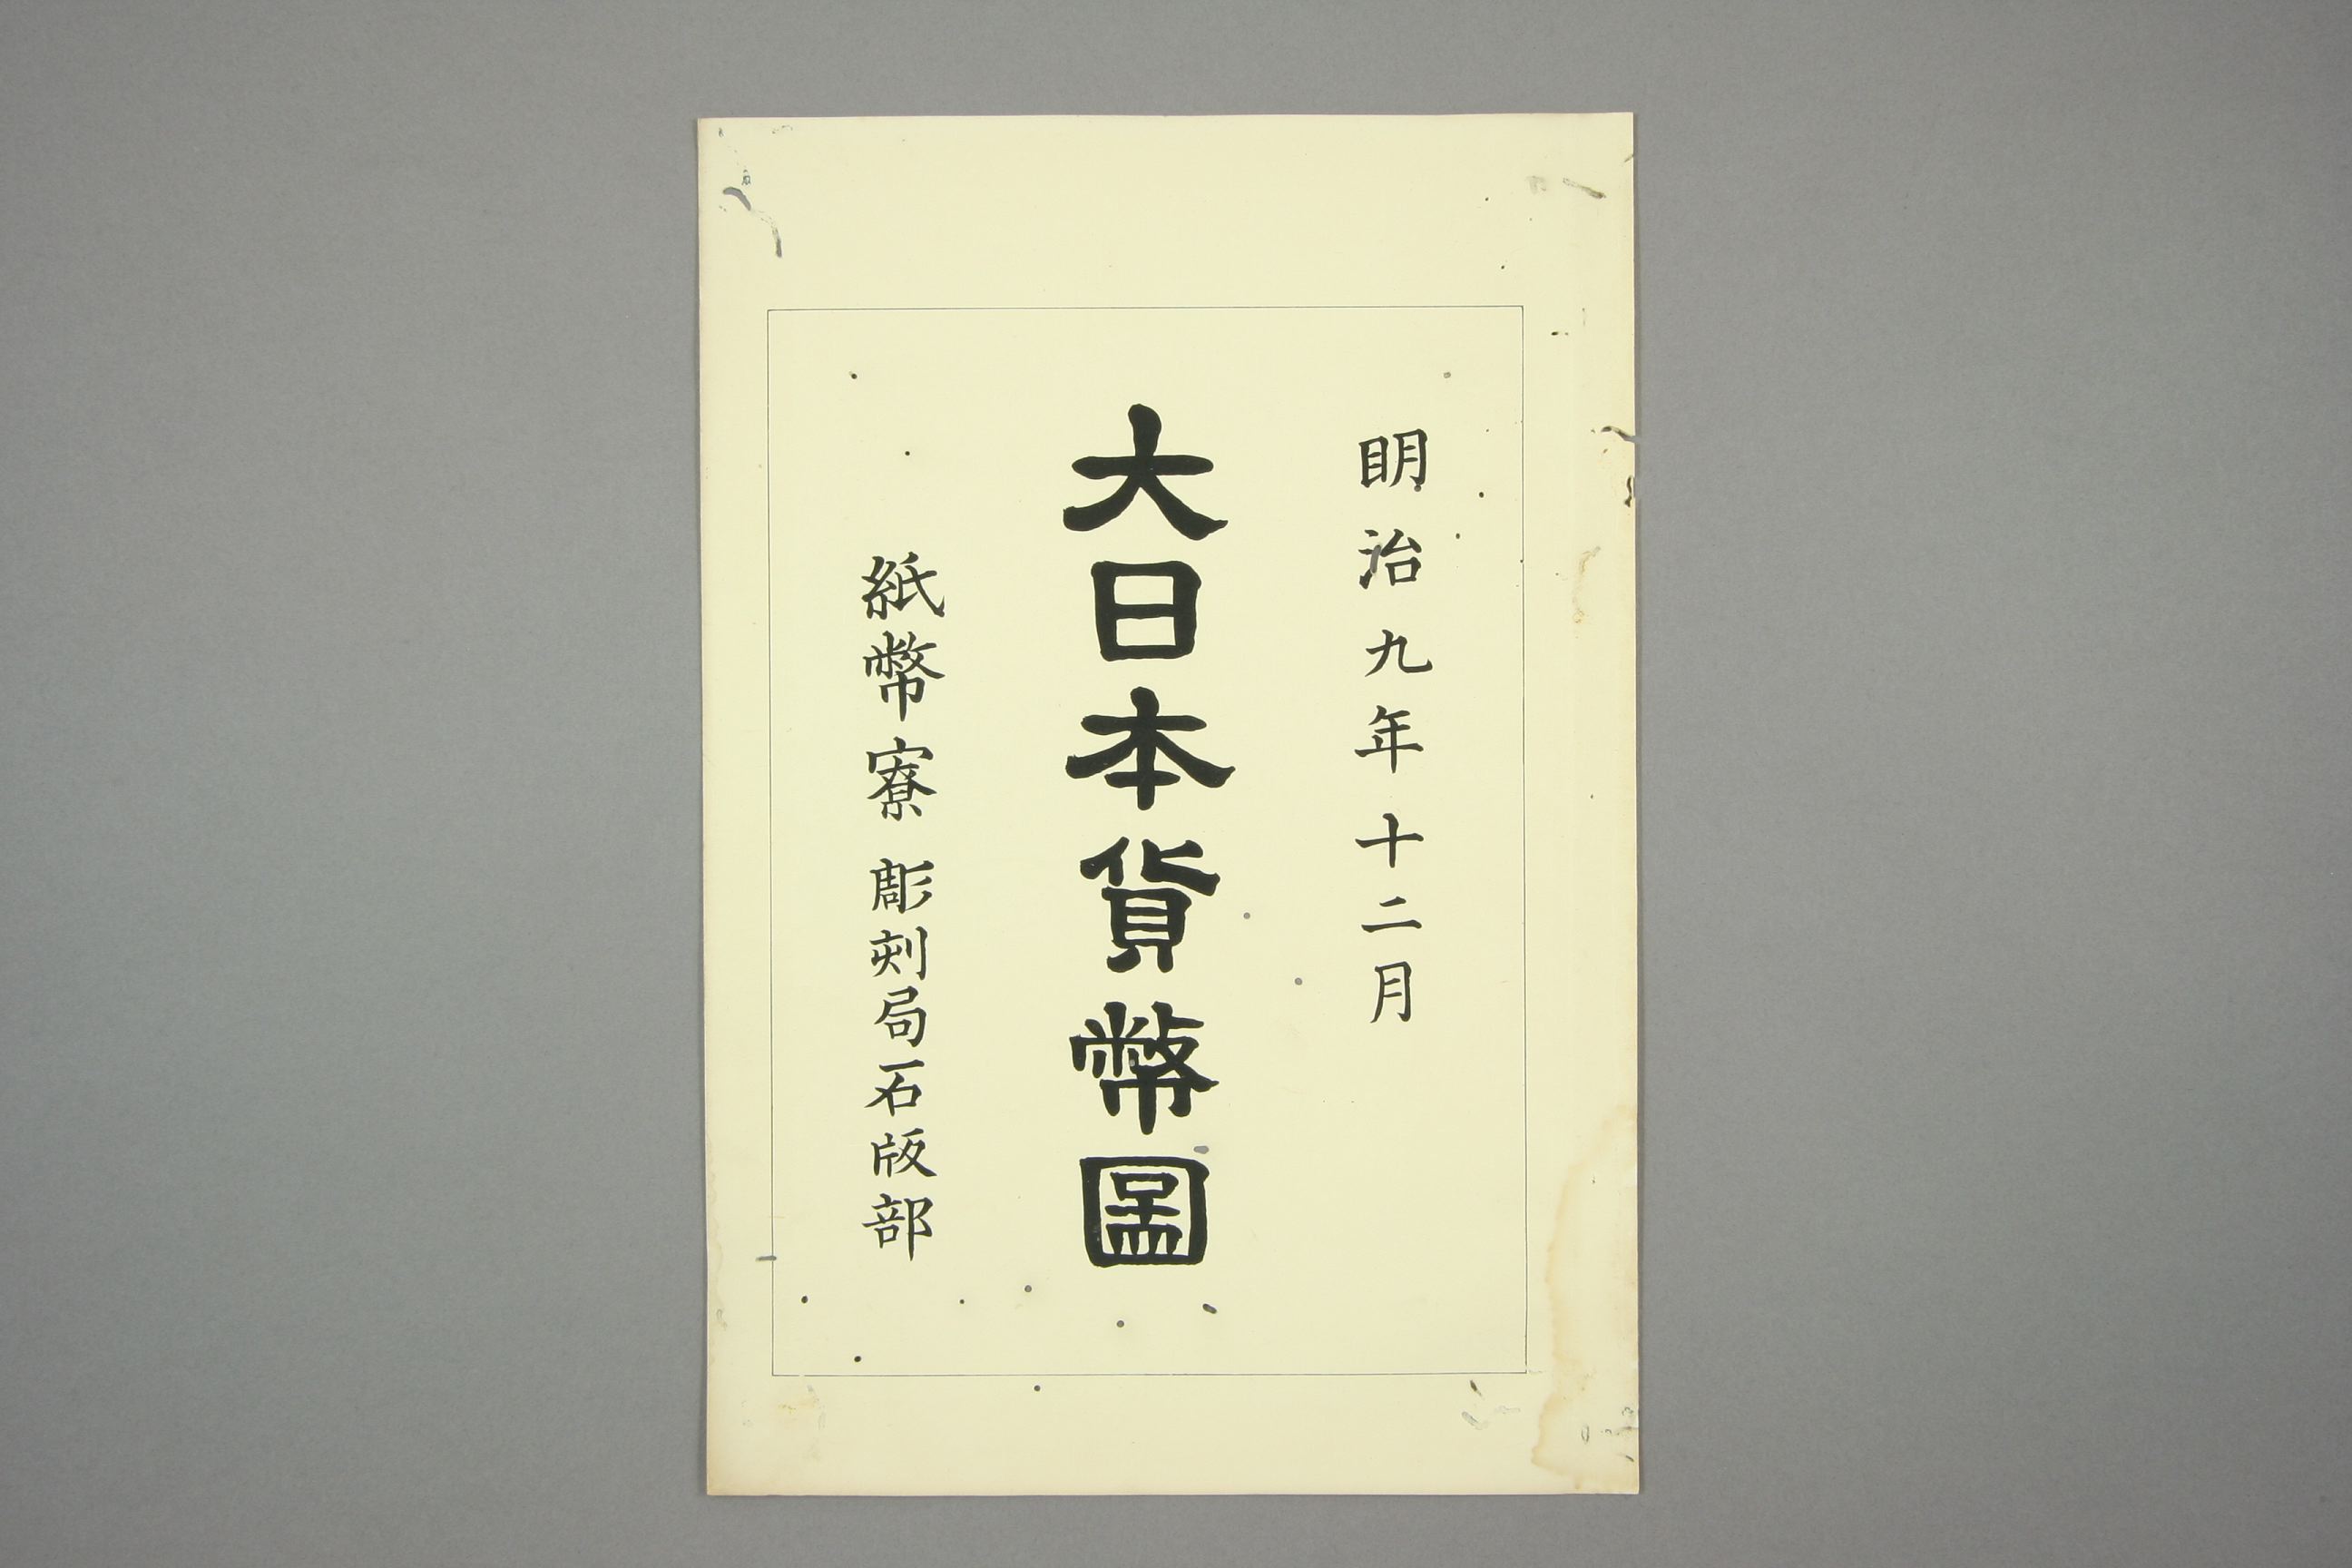 明治九年十二月
大日本貨幣圖
紙幣寮彫刻局石版部